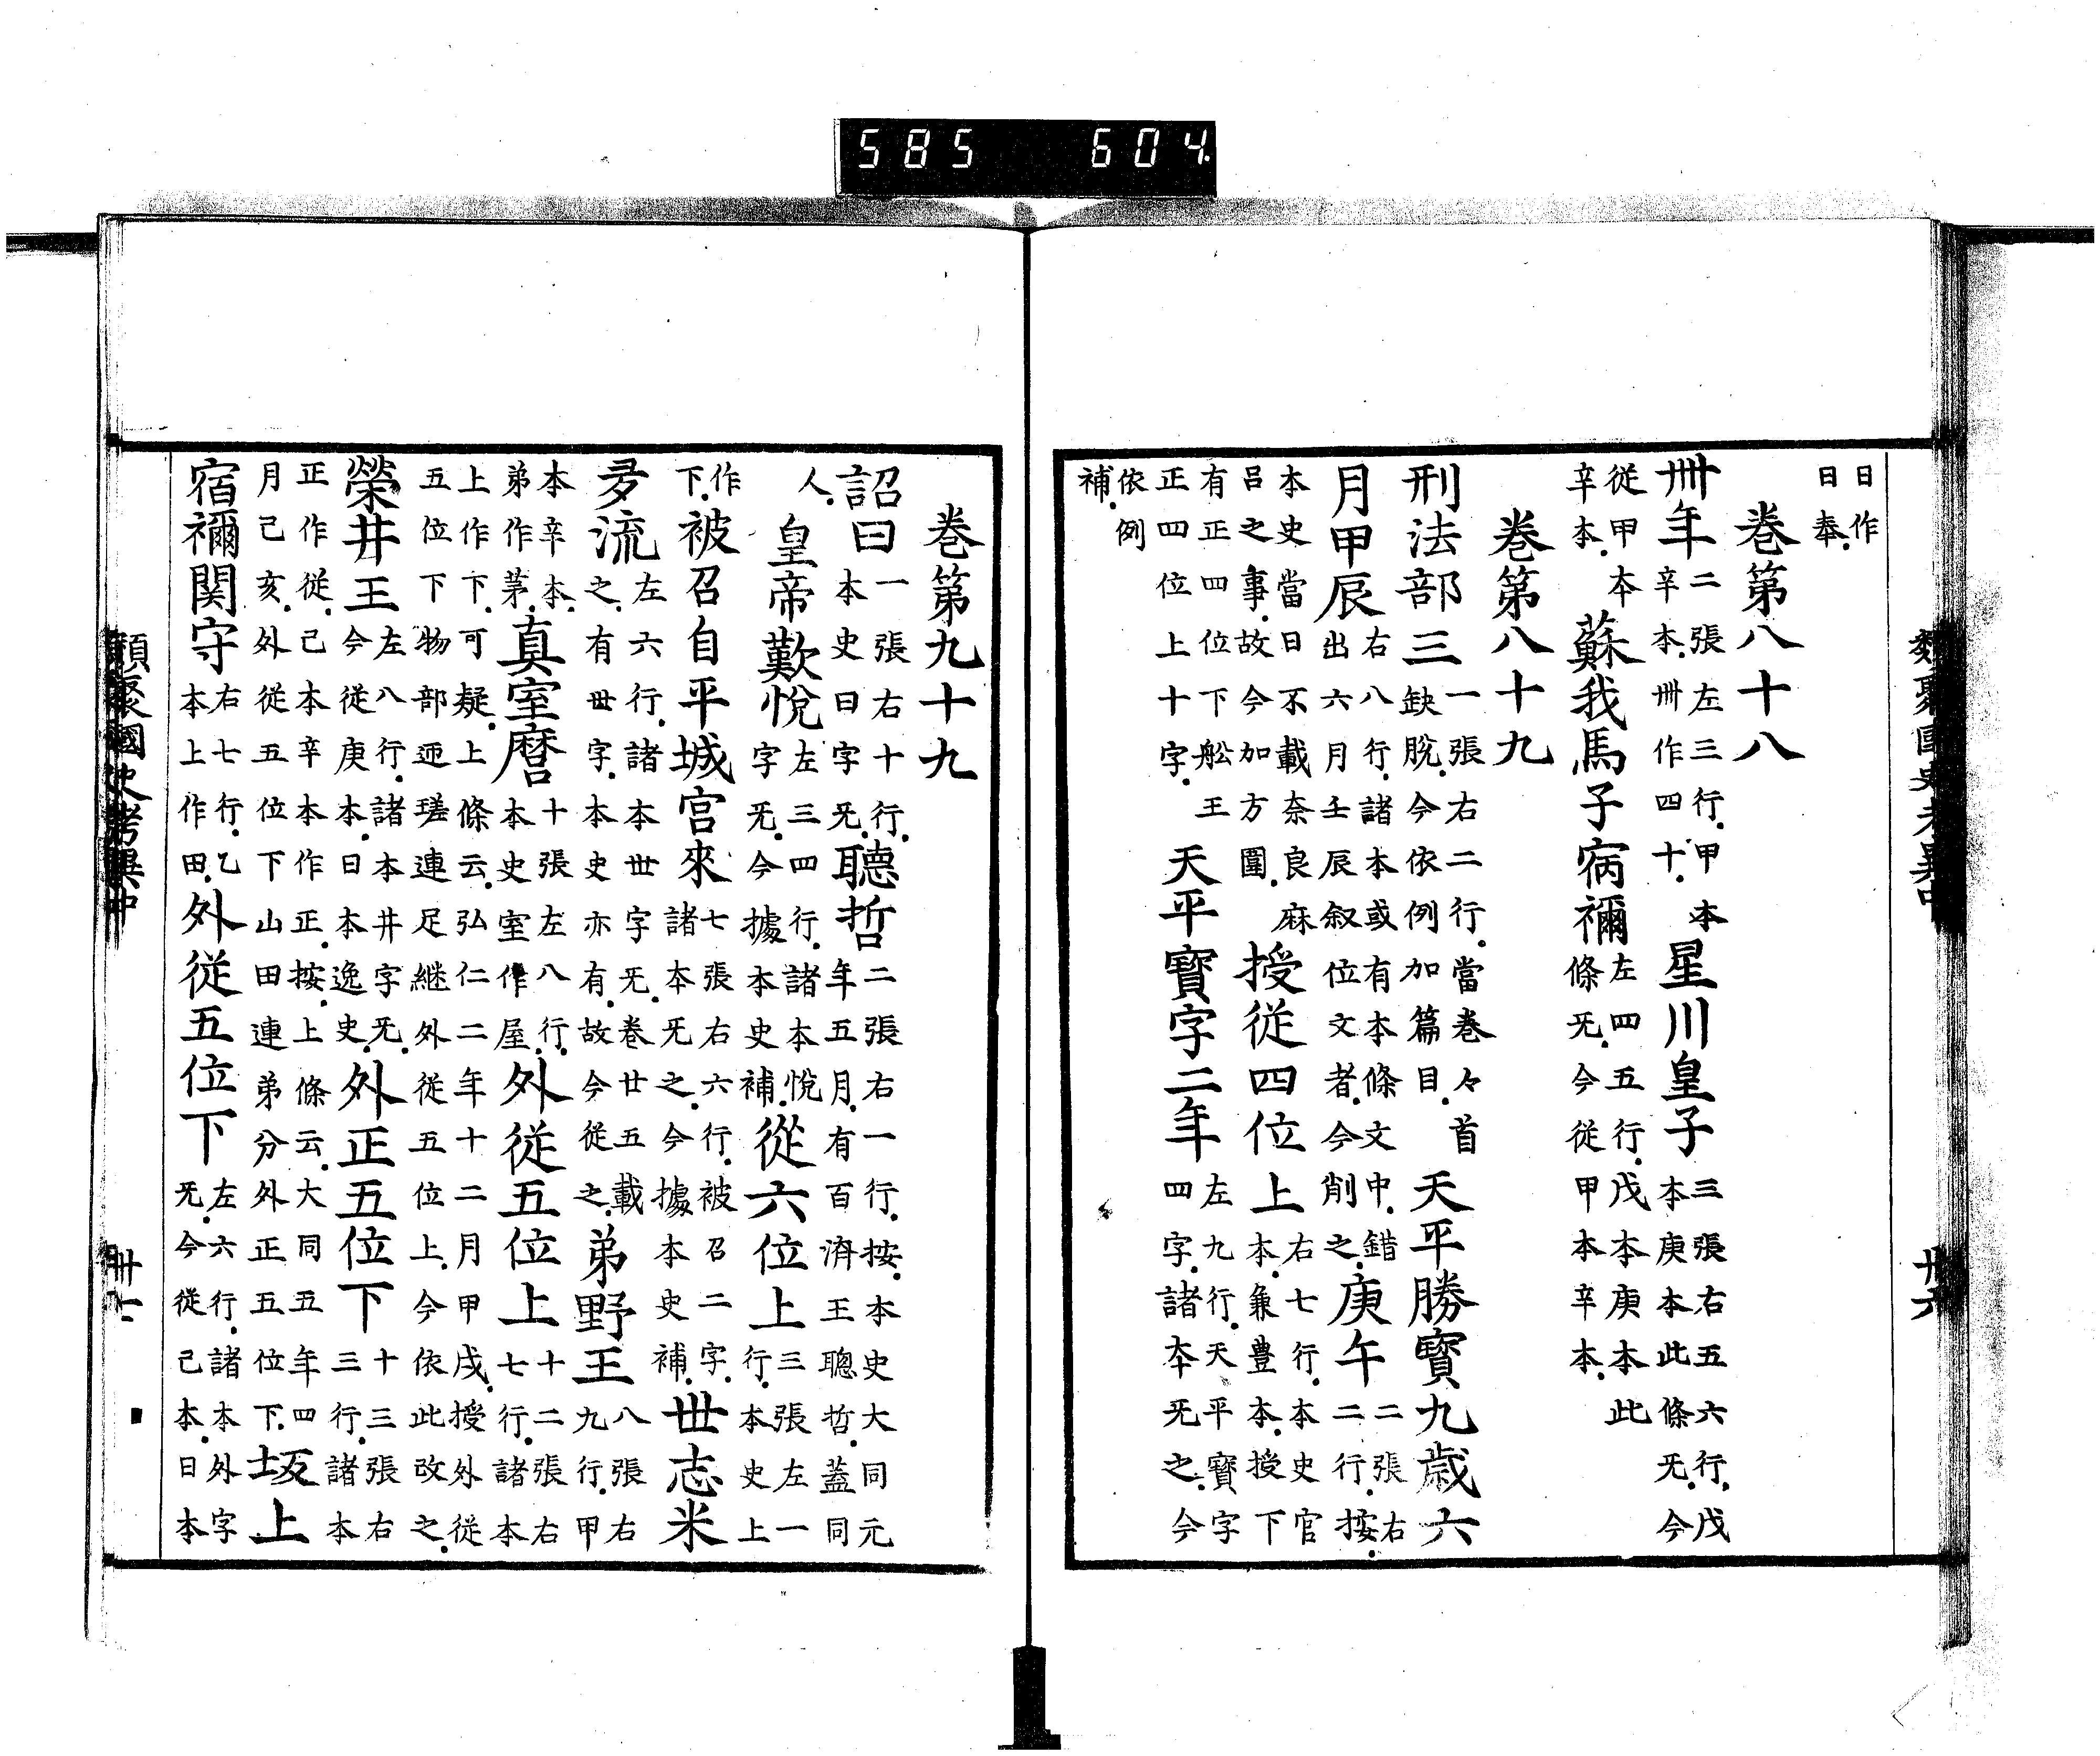 585 604
類聚國史考異中 卅六
日作
日奉
巻第八十八
卌年二張左三行甲本辛本卌作四十星川皇子三張右五六行戊本庚本此條无今
從甲本辛本蘇我馬子病禰左四五行戊本庚本此條无今從甲本辛本
巻第八十九
刑法部三一張右二行當巻々首缺脫今依例加篇目天平勝寳九歳六
月甲辰右八行諸本或有本條文中錯出六月壬辰叙位文者今削之庚午二張右二行按
本史當日不載奈良麻呂之事故今加方圍授從四位上右七行本史官本兼豊本授下
有正四位下舩王正四位上十字天平寳字二年左九行天平寳字四字諸本无之今
依例
補
巻第九十九
詔曰一張右十行本史曰字无聽哲二張右一行按本史大同元年五月有百濟王聰哲蓋同
人皇帝歡悅左三四行諸本悅字无今據本史補從六位上三張左一行本史上
作下被召自平城宮來七張右六行被召二字諸本无之今據本史補世志米
多流左六行諸本世字无巻廿五載之有世字本史亦有故今從之弟野王八張右九行甲
本辛本弟作茅真室麿十張左八行本史室作屋外從五位上十二張右七行諸本
上作下可疑上條云弘仁二年十二月甲戌授外從五位下物部𨒛瑳連足継外從五位上今依此改之
榮井王左八行諸本井字无今從庚本日本逸史外正五位下十三張右三行諸本
正作從己本辛本作正按上條云大同五年四月己亥外從五位下山田連弟分外正五位下坂上
宿禰関守右七行乙本上作田外從五位下左六行諸本外字无今從己本日本
類聚國史考異中